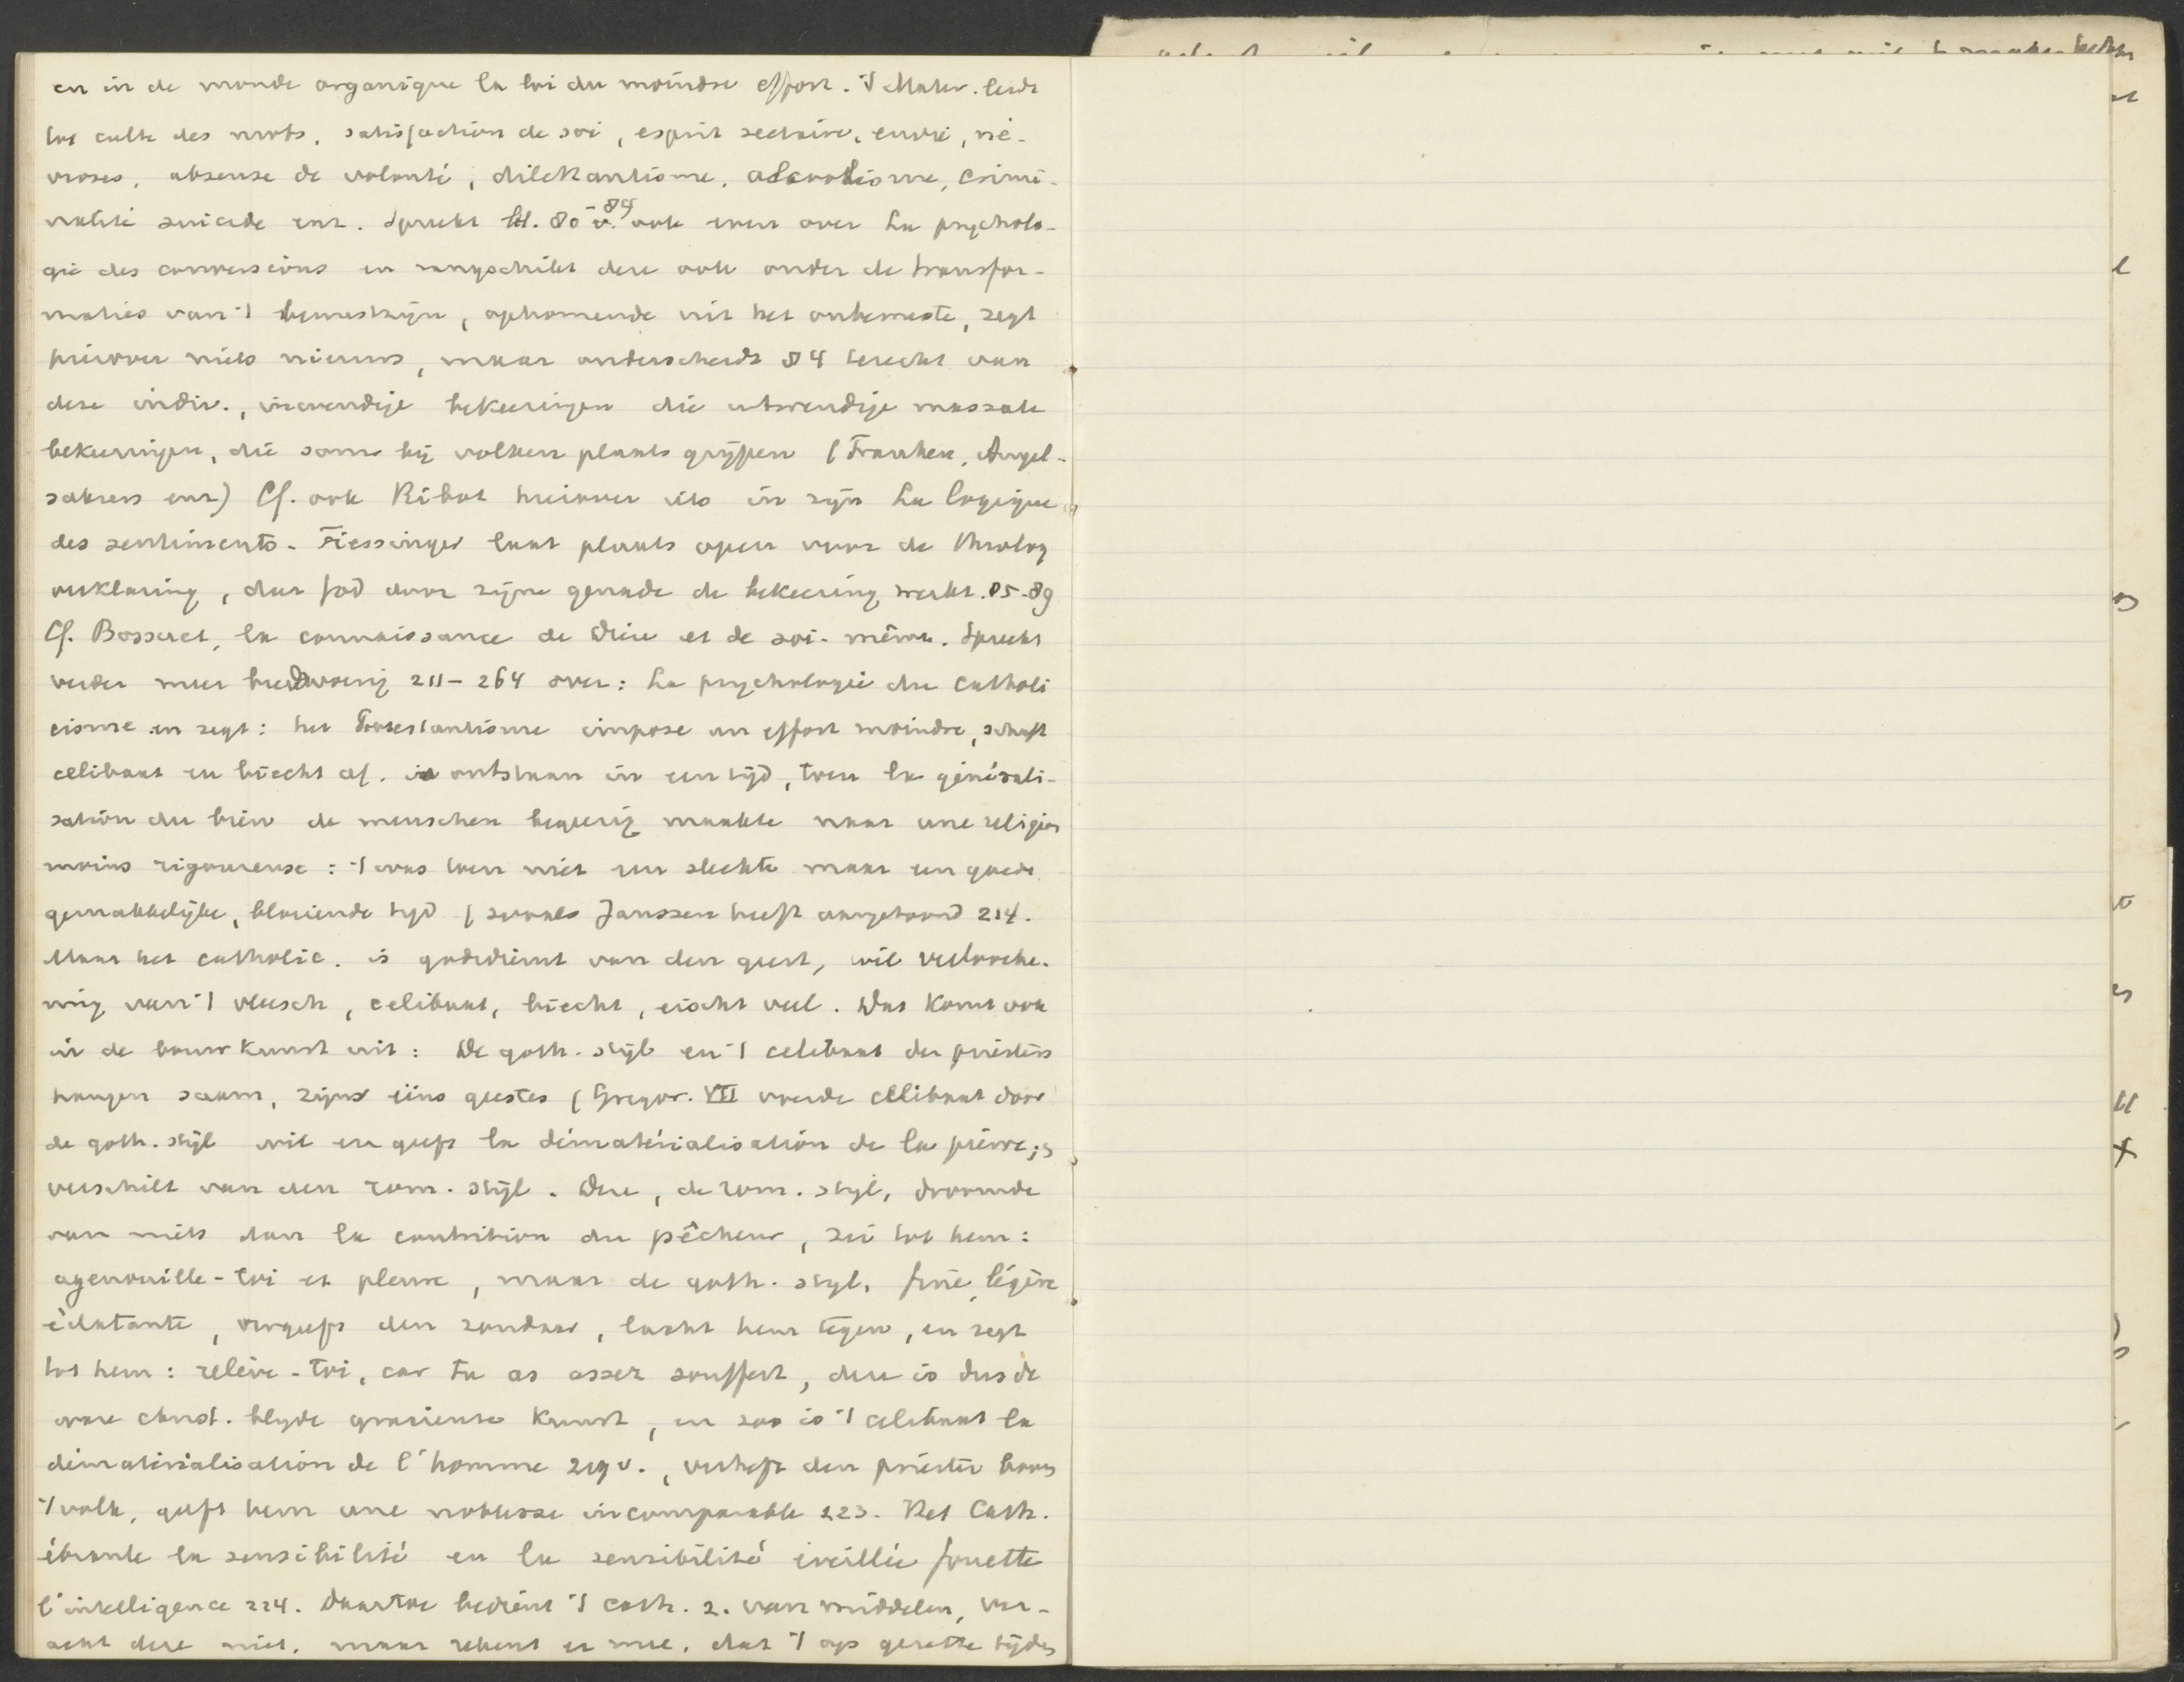 en in de monde organique la loi du moindre effort. 't Mater. leidt
tot culte des mots, satisfaction de soi, esprit sectaire, envie, né-
vroses, absense de volonté, dilettantisme, alcoolisme, crimi-
nalité suicide enz. Spreekt bl. 80-84 v. ook even over La psycholo-
gie des conversions en rangschikt deze ook onder de transfor-
maties van 't bewustzijn, opkomende uit het onbewuste, zegt
hierover niets nieuws, maar onderscheidt 84 terecht van
deze indiv., inwendige bekeeringen die uitwendige massale
bekeeringen, die soms bij volken plaats grijpen (Franken, Angel-
saksers enz) Cf. ook Ribot hierover iets in zijn La logique
des sentiments. Fiessinger laat plaats open voor de theolog
verklaring, dat God door zijne genade de bekeering werkt. 85-89
Cf. Bossuet, la connaissance de Dieu et de soi-même. Spreekt
verder meer breedvoerig 211-264 over: La psychologie du catholi
cisme en zegt: het Protestantisme impose un effort moindre, schaft
celibaat en biecht af. is ontstaan in een tijd, toen la générali-
sation du bien de menschen begeerig maakte naar une religion
moins rigoureuse: 't was toen niet een slechte maar een goede
gemakkelijke, bloeiende tijd (zooals Janssen heeft aangetoond 214.
Maar het catholic. is godsdienst van den geest, wil verlooche-
ning van 't vleesch, celibaat, biecht, eischt veel. Dat komt ook
in de bouwkunst uit: De goth. stijl en 't celibaat der priesters
hangen saam, zijns eens geestes (Gregor. VII voerde celibaat door
de goth. stijl wil en geeft la dématérialisation de la pierre;
verschilt van den rom. stijl. Deze, de rom. stijl, droomde
van niets dan la contrition du pêcheur, zei tot hem:
agenouille-toi et pleure, maar de goth. stijl, fine, légère
éclatante, vergeeft den zondaar, lacht hem tegen, en zegt
tot hem: relève-toi, car tu as assez souffert, deze is dus de
ware christ. blyde gracieuse kunst, en zoo is 't celibaat la
dématérialisation de l'homme 219 v., verheft den priester boven
't volk, geeft hem une noblesse incomparable 223. Het Cath.
ébranle la sensibilité en la sensibilité éveillée fouette
l'intelligence 224. Daartoe bedient 't cath. z. van middelen, ver-
acht deze niet, maar rekent er mee, dat 't op gezette tijden